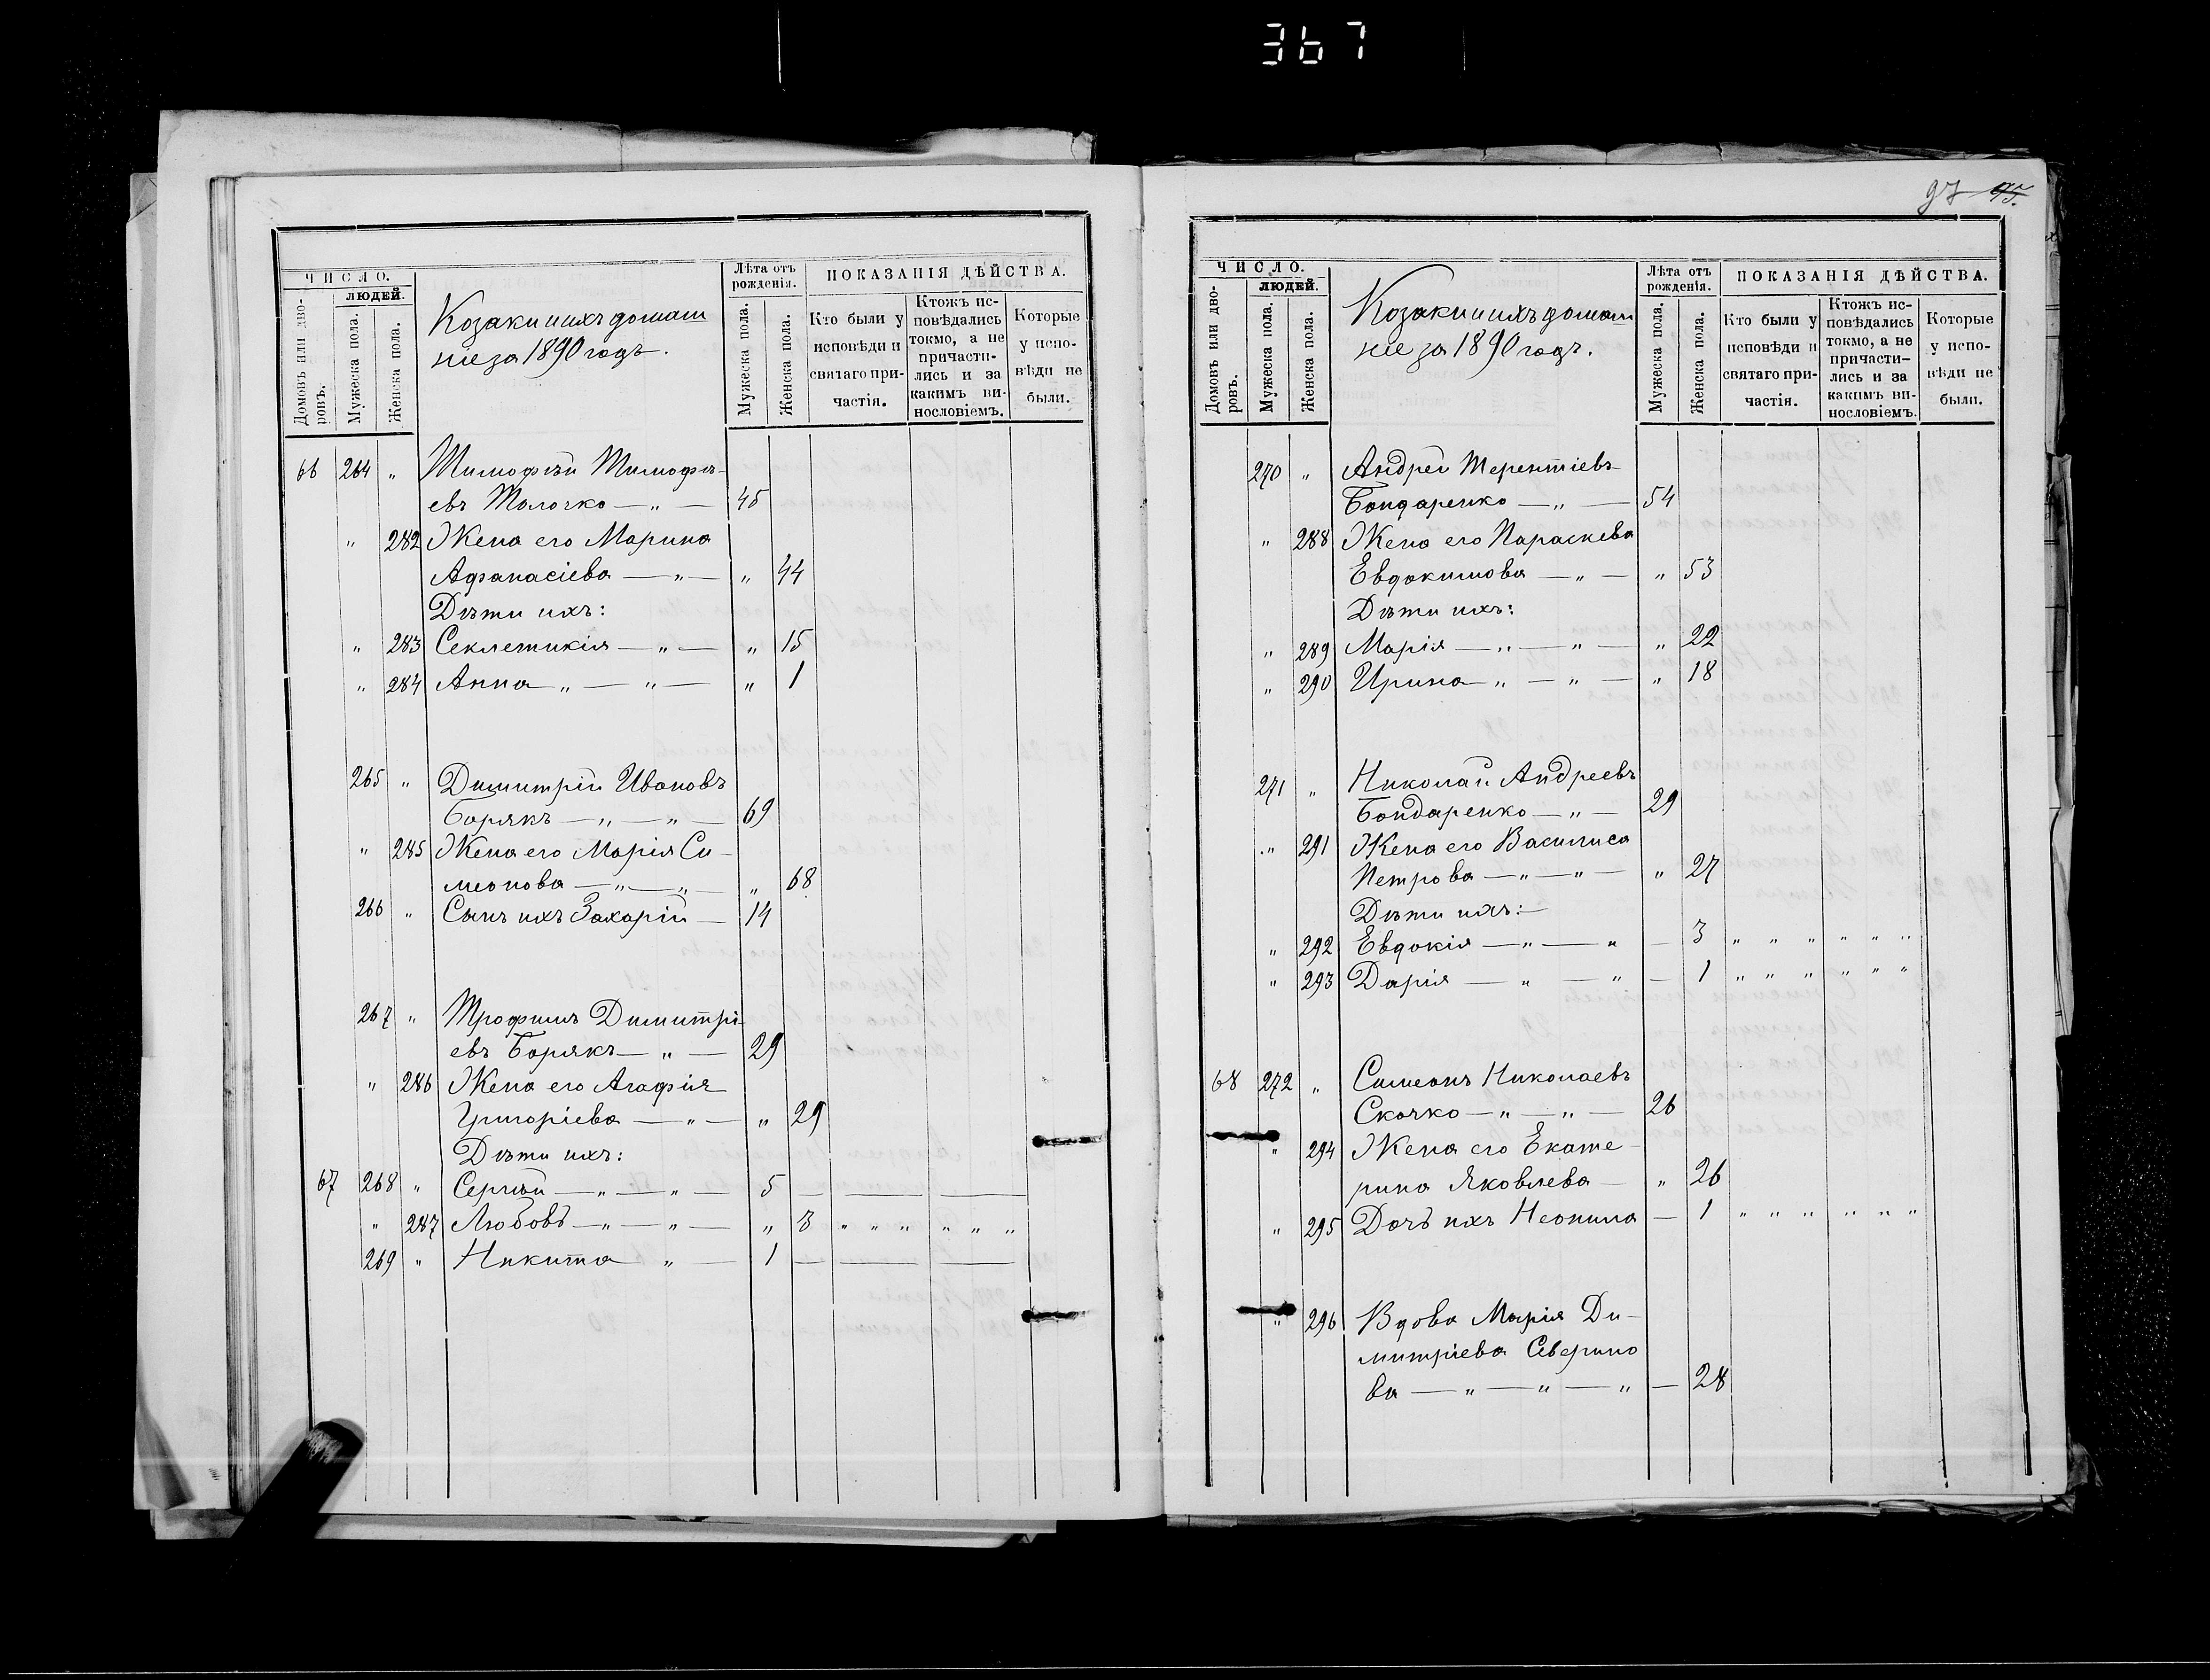 367
97 95.
ЧИСЛО.
ЛЮДЕЙ.
Домовъ или дворовъ.
Мужеска пола.
Женска пола.
Козаки и ихъ домаш
ніе за 1890 годъ.
Лѣта отъ рожденія.
Мужеска пола.
Женска пола.
ПОКАЗАНІЯ ДѢЙСТВА.
Кто были у
исповѣди и
святаго при-
частія.
Ктожъ ис-
повѣдались
токмо, а не
причасти-
лись и за
какимъ ви-
нословіемъ.
Которые
у испо-
вѣди не
были.
66 264 " Тимофѣй Тимофѣ-
евъ Толочко — " — 45
" 282 Жена его Марина
Афанасіева — " — " 44
Дѣти ихъ:
" 283 Секлетикія — " — " 15
" 284 Анна " — " — " 1
265 " Димитрій Ивановъ
Борякъ — " — " — 69
" 285 Жена его Марія Си-
меонова — " — " — " 68
266 " Сынъ ихъ Захарій — 14
267 " Трофимъ Димитрі-
евъ Борякъ — " — 29
" 286 Жена его Агафія
Григоріева — " — " 29
Дѣти ихъ:
67 268 " Сергѣй — " — " — 5 — — —
" 287 Любовь — " — " — " 3 " " " " " "
269 " Никита " — 1 — — —
ЧИСЛО.
ЛЮДЕЙ.
Домовъ или дворовъ.
Мужеска пола.
Женска пола.
Козаки и ихъ домаш
ніе за 1890 годъ.
Лѣта отъ рожденія.
Мужеска пола.
Женска пола.
ПОКАЗАНІЯ ДѢЙСТВА.
Кто были у
исповѣди и
святаго при-
частія.
Ктожъ ис-
повѣдались
токмо, а не
причасти-
лись и за
какимъ ви-
нословіемъ.
Которые
у испо-
вѣди не
были.
270 " Андрей Терентіевъ
Бондаренко — " — 54
" 288 Жена его Параскева
Евдокимова — " — " 53
Дѣти ихъ:
" 289 Марія — " — " — " 22
" 290 Ирина " — " — " 18
271 " Николай Андреевъ
Бондаренко — " — 29
" 291 Жена его Василиса
Петрова — " — " — " 27
Дѣти ихъ: —
" 292 Евдокія — " — " — 3 " " " " " "
" 293 Дарія — " — " — 1 " " " " " "
68 272 " Симеонъ Николаевъ
Скочко — " — " — 26
" 294 Жена его Екате-
рина Яковлева — " 26
" 295 Дочь ихъ Неонила — 1 " " " " " "
" 296 Вдова Марія Ди-
митріева Северино
ва — " — " — " — 28